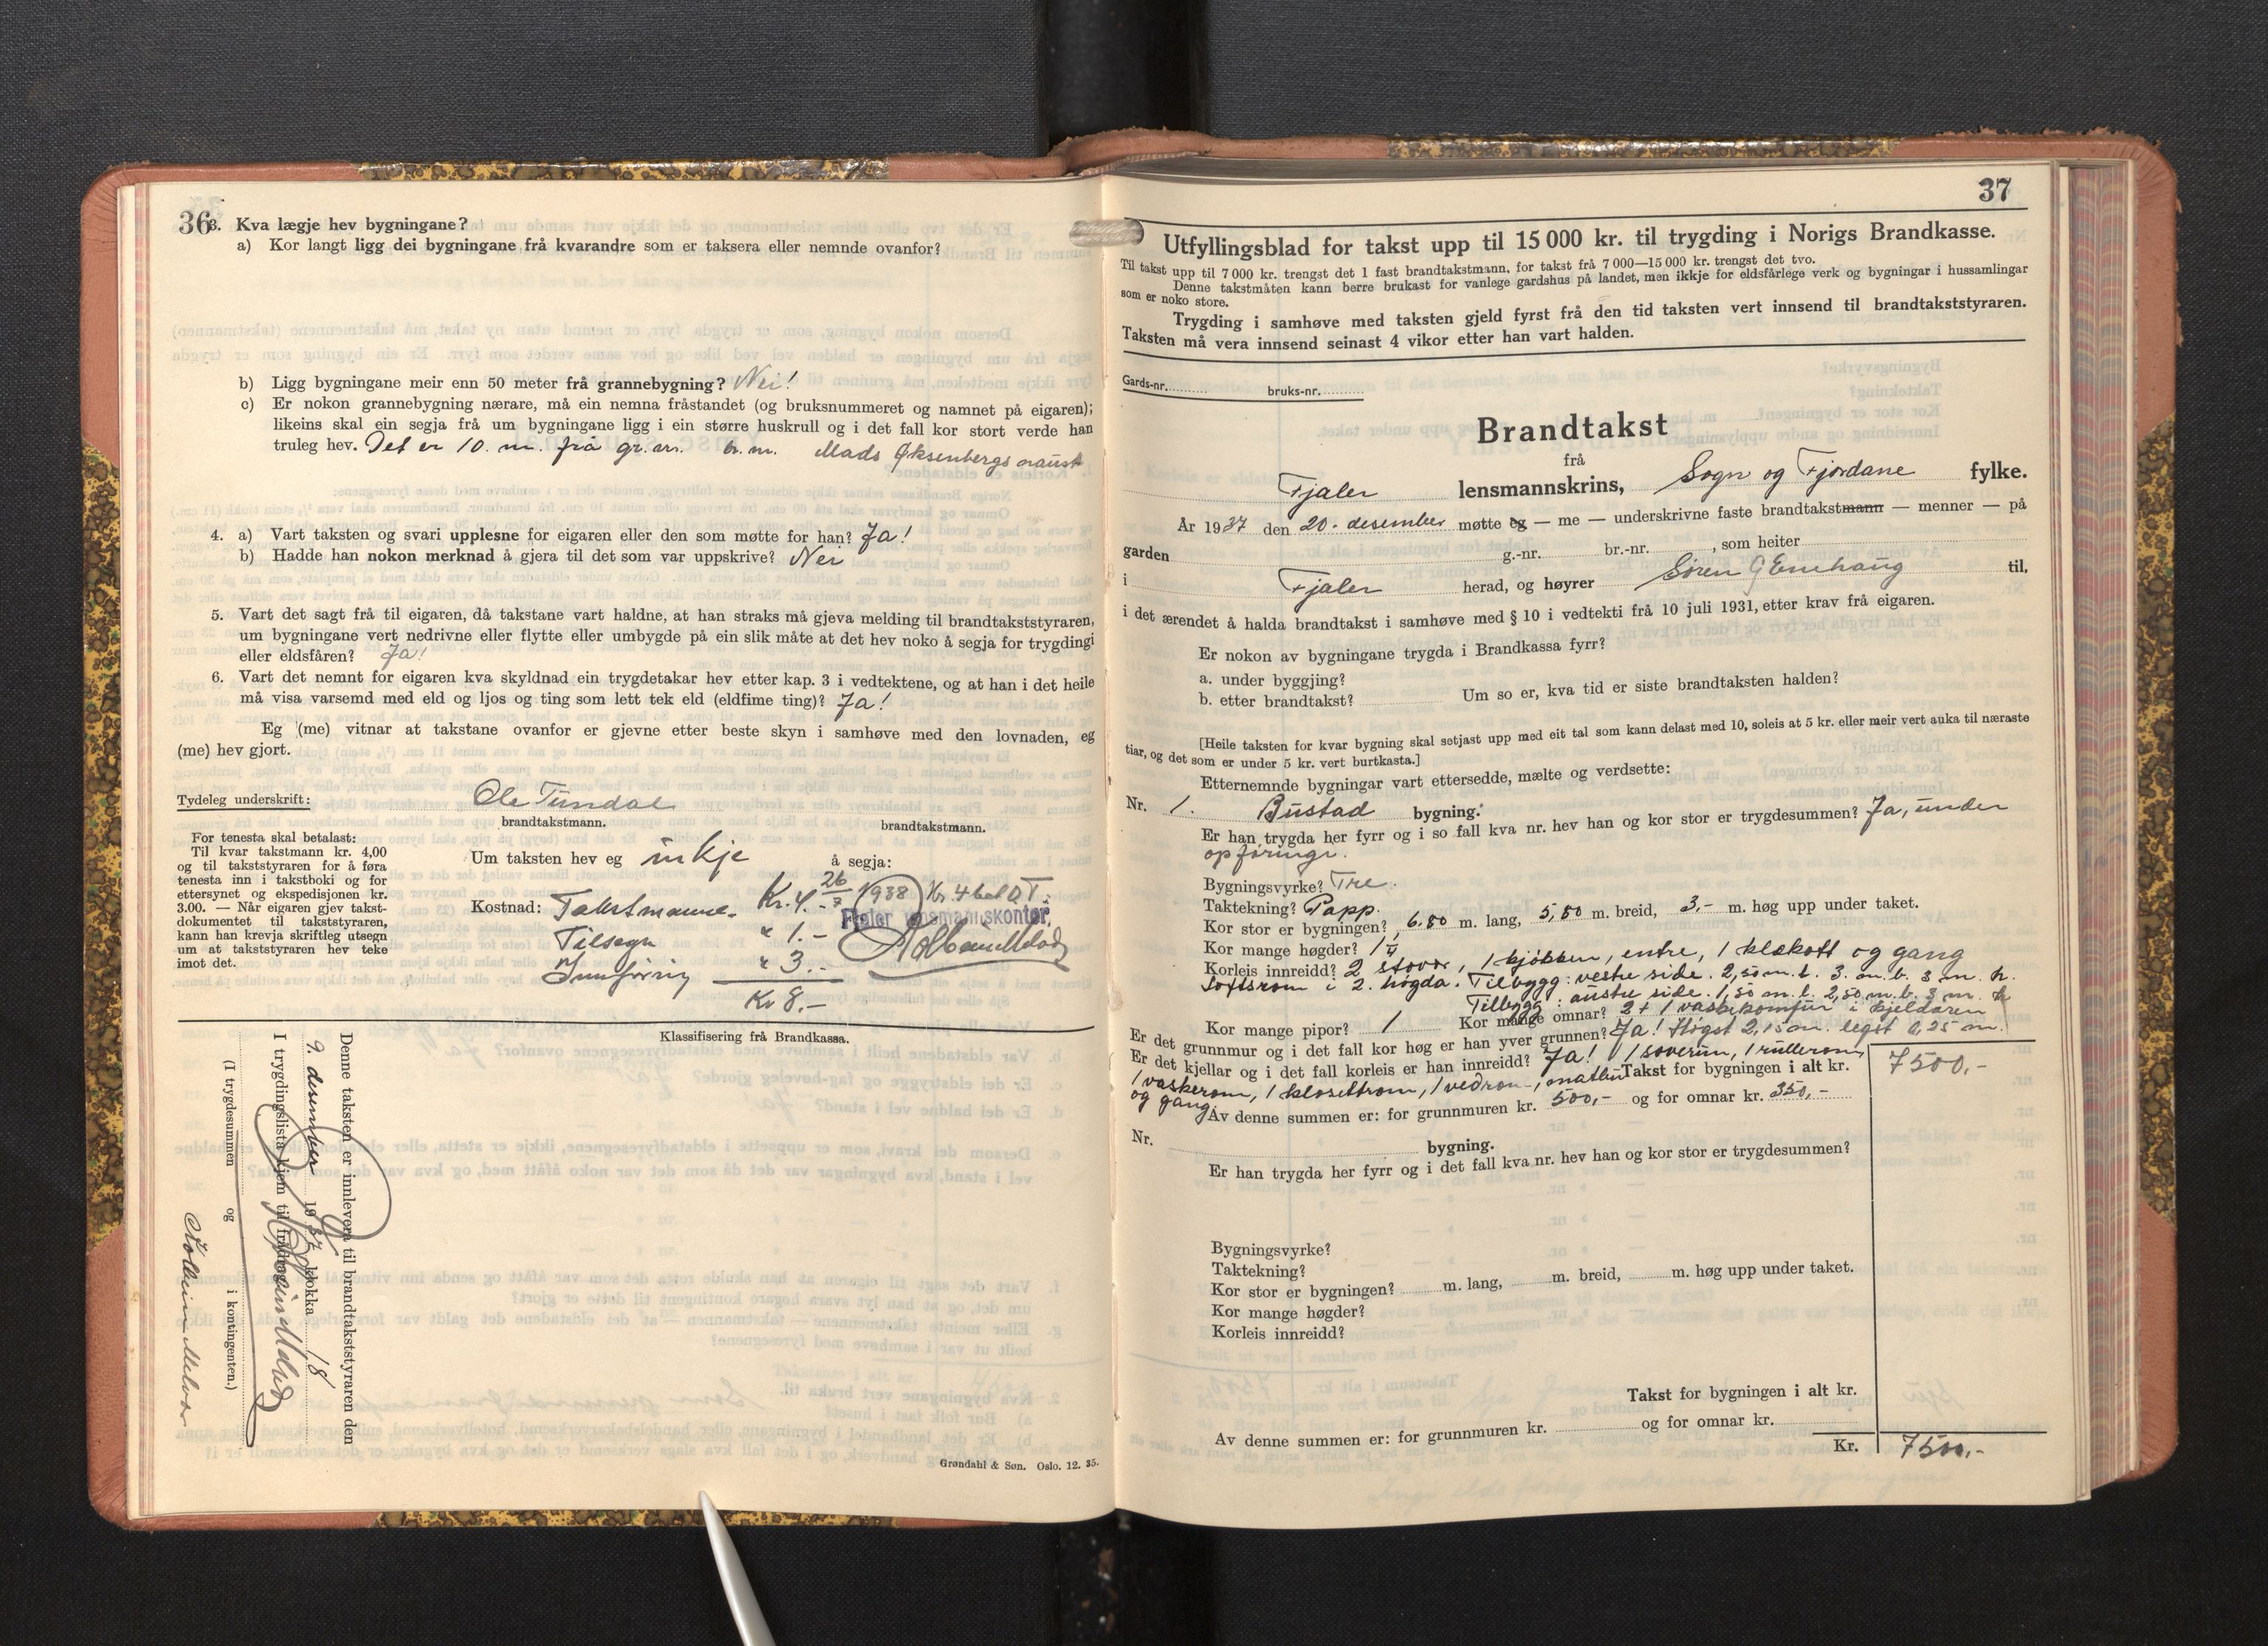 36
3. Kva lægje hev bygningane?
a) Kor langt ligg dei bygningane frå kvarandre som er taksera eller nemnde ovanfor?
b) Ligg bygningane meir enn 50 meter frå grannebygning? Nei!
c) Er nokon grannebygning nærare, må ein nemna fråstandet (og bruksnummeret og namnet på eigaren);
likeins skal ein segja frå um bygningane ligg i ein større huskrull og i det fall kor stort verde han
truleg hev. Det er 10. m. frå gr. nr. br. nr. Mads Øksenbergs naust
4. a) Vart taksten og svari upplesne for eigaren eller den som møtte for han? Ja!
b) Hadde han nokon merknad å gjera til det som var uppskrive? Nei
5. Vart det sagt frå til eigaren, då takstane vart haldne, at han straks må gjeva melding til brandtakststyraren,
um bygningane vert nedrivne eller flytte eller umbygde på ein slik måte at det hev noko å segja for trygdingi
eller eldsfåren? Ja!
6. Vart det nemnt for eigaren kva skyldnad ein trygdetakar hev etter kap. 3 i vedtektene, og at han i det heile
må visa varsemd med eld og ljos og ting som lett tek eld (eldfime ting)? Ja!
Eg (me) vitnar at takstane ovanfor er gjevne etter beste skyn i samhøve med den lovnaden, eg
(me) hev gjort.
Tydeleg underskrift: Ole Tundal
brandtakstmann. brandtakstmann.
For tenesta skal betalast:
Til kvar takstmann kr. 4,00
og til takststyraren for å føra
tenesta inn i takstboki og for
ettersynet og ekspedisjonen kr.
3.00. — Når eigaren gjev takst-
dokumentet til takststyraren,
kann han krevja skriftleg utsegn
um at takststyraren hev teke
imot det.
Um taksten hev eg inkje å segja:
Kostnad: Takstmann. Kr. 4.- 26/7 1938 Kr. 4 bet. O T.
Fjaler lensmannskontor
Tilsegn " 1.-
Innføring " 3.-
Kr 8.-
Klassifisering frå Brandkassa.
Denne taksten er innlevera til brandtakststyraren den
9. desember 1937 klokka 18
I trygdingslista kjem til frådrag
(I trygdesummen og i kontingenten.)
Grøndahl & Søn. Oslo. 12. 35.
37
Utfyllingsblad for takst upp til 15 000 kr. til trygding i Norigs Brandkasse.
Til takst upp til 7 000 kr. trengst det 1 fast brandtakstmann, for takst frå 7 000—15 000 kr. trengst det tvo.
Denne takstmåten kann berre brukast for vanlege gardshus på landet, men ikkje for eldsfårlege verk og bygningar i hussamlingar
som er noko store.
Trygding i samhøve med taksten gjeld fyrst frå den tid taksten vert innsend til brandtakststyraren.
Taksten må vera innsend seinast 4 vikor etter han vart halden.
Gards-nr. bruks-nr.
Brandtakst
frå
Fjaler lensmannskrins, Sogn og Fjordane fylke.
År 1937 den 20. desember møtte eg — me — underskrivne faste brandtakstmann — menner — på
garden g.-nr. br.-nr. , som heiter
i Fjaler herad, og høyrer Søren G Enehaug til,
i det ærendet å halda brandtakst i samhøve med § 10 i vedtekti frå 10 juli 1931, etter krav frå eigaren.
Er nokon av bygningane trygda i Brandkassa fyrr?
a. under byggjing?
b. etter brandtakst? Um so er, kva tid er siste brandtaksten halden?
[Heile taksten for kvar bygning skal setjast upp med eit tal som kann delast med 10, soleis at 5 kr. eller meir vert auka til næraste
tiar, og det som er under 5 kr. vert burtkasta.]
Etternemnde bygningar vart ettersedde, mælte og verdsette:
Nr. 1. Bustad bygning.
Er han trygda her fyrr og i so fall kva nr. hev han og kor stor er trygdesummen? Ja, under
opføringi.
Bygningsvyrke? Tre.
Taktekning? Papp.
Kor stor er bygningen? 6.80 m. lang, 5,80 m. breid, 3,- m. høg upp under taket.
Kor mange høgder? 1½
Korleis innreidd? 2 stover, 1 kjøkken, entre, 1 klekott og gang
Loftsrom i 2. høgda. Tilbygg: vestre side. 2,50 m. l. 3. m. b. 3 m. h.
Tilbygg: austre side. 1,50 m. l. 2,50 m. b. 3 m. h
Kor mange pipor? 1 Kor mange omnar? 2 + 1 vaskekomfur i kjeldaren
Er det grunnmur og i det fall kor høg er han yver grunnen? Ja! Høgst 2,15 m. legst 0,25 m.
Er det kjellar og i det fall korleis er han innreidd? Ja! 1 soverum, 1 rullerom,
1 vaskerom, 1 klosettrom, 1 vedrom, matbu Takst for bygningen i alt kr. 7500,-
og gang
Av denne summen er: for grunnmuren kr. 500,- og for omnar kr. 350,-
Nr. bygning.
Er han trygda her fyrr og i det fall kva nr. hev han og kor stor er trygdesummen?
Bygningsvyrke?
Taktekning?
Kor stor er bygningen? m. lang, m. breid, m. høg upp under taket.
Kor mange høgder?
Korleis innreidd?
Takst for bygningen i alt kr.
Av denne summen er: for grunnmuren kr. og for omnar kr.
Kr. 7500,-